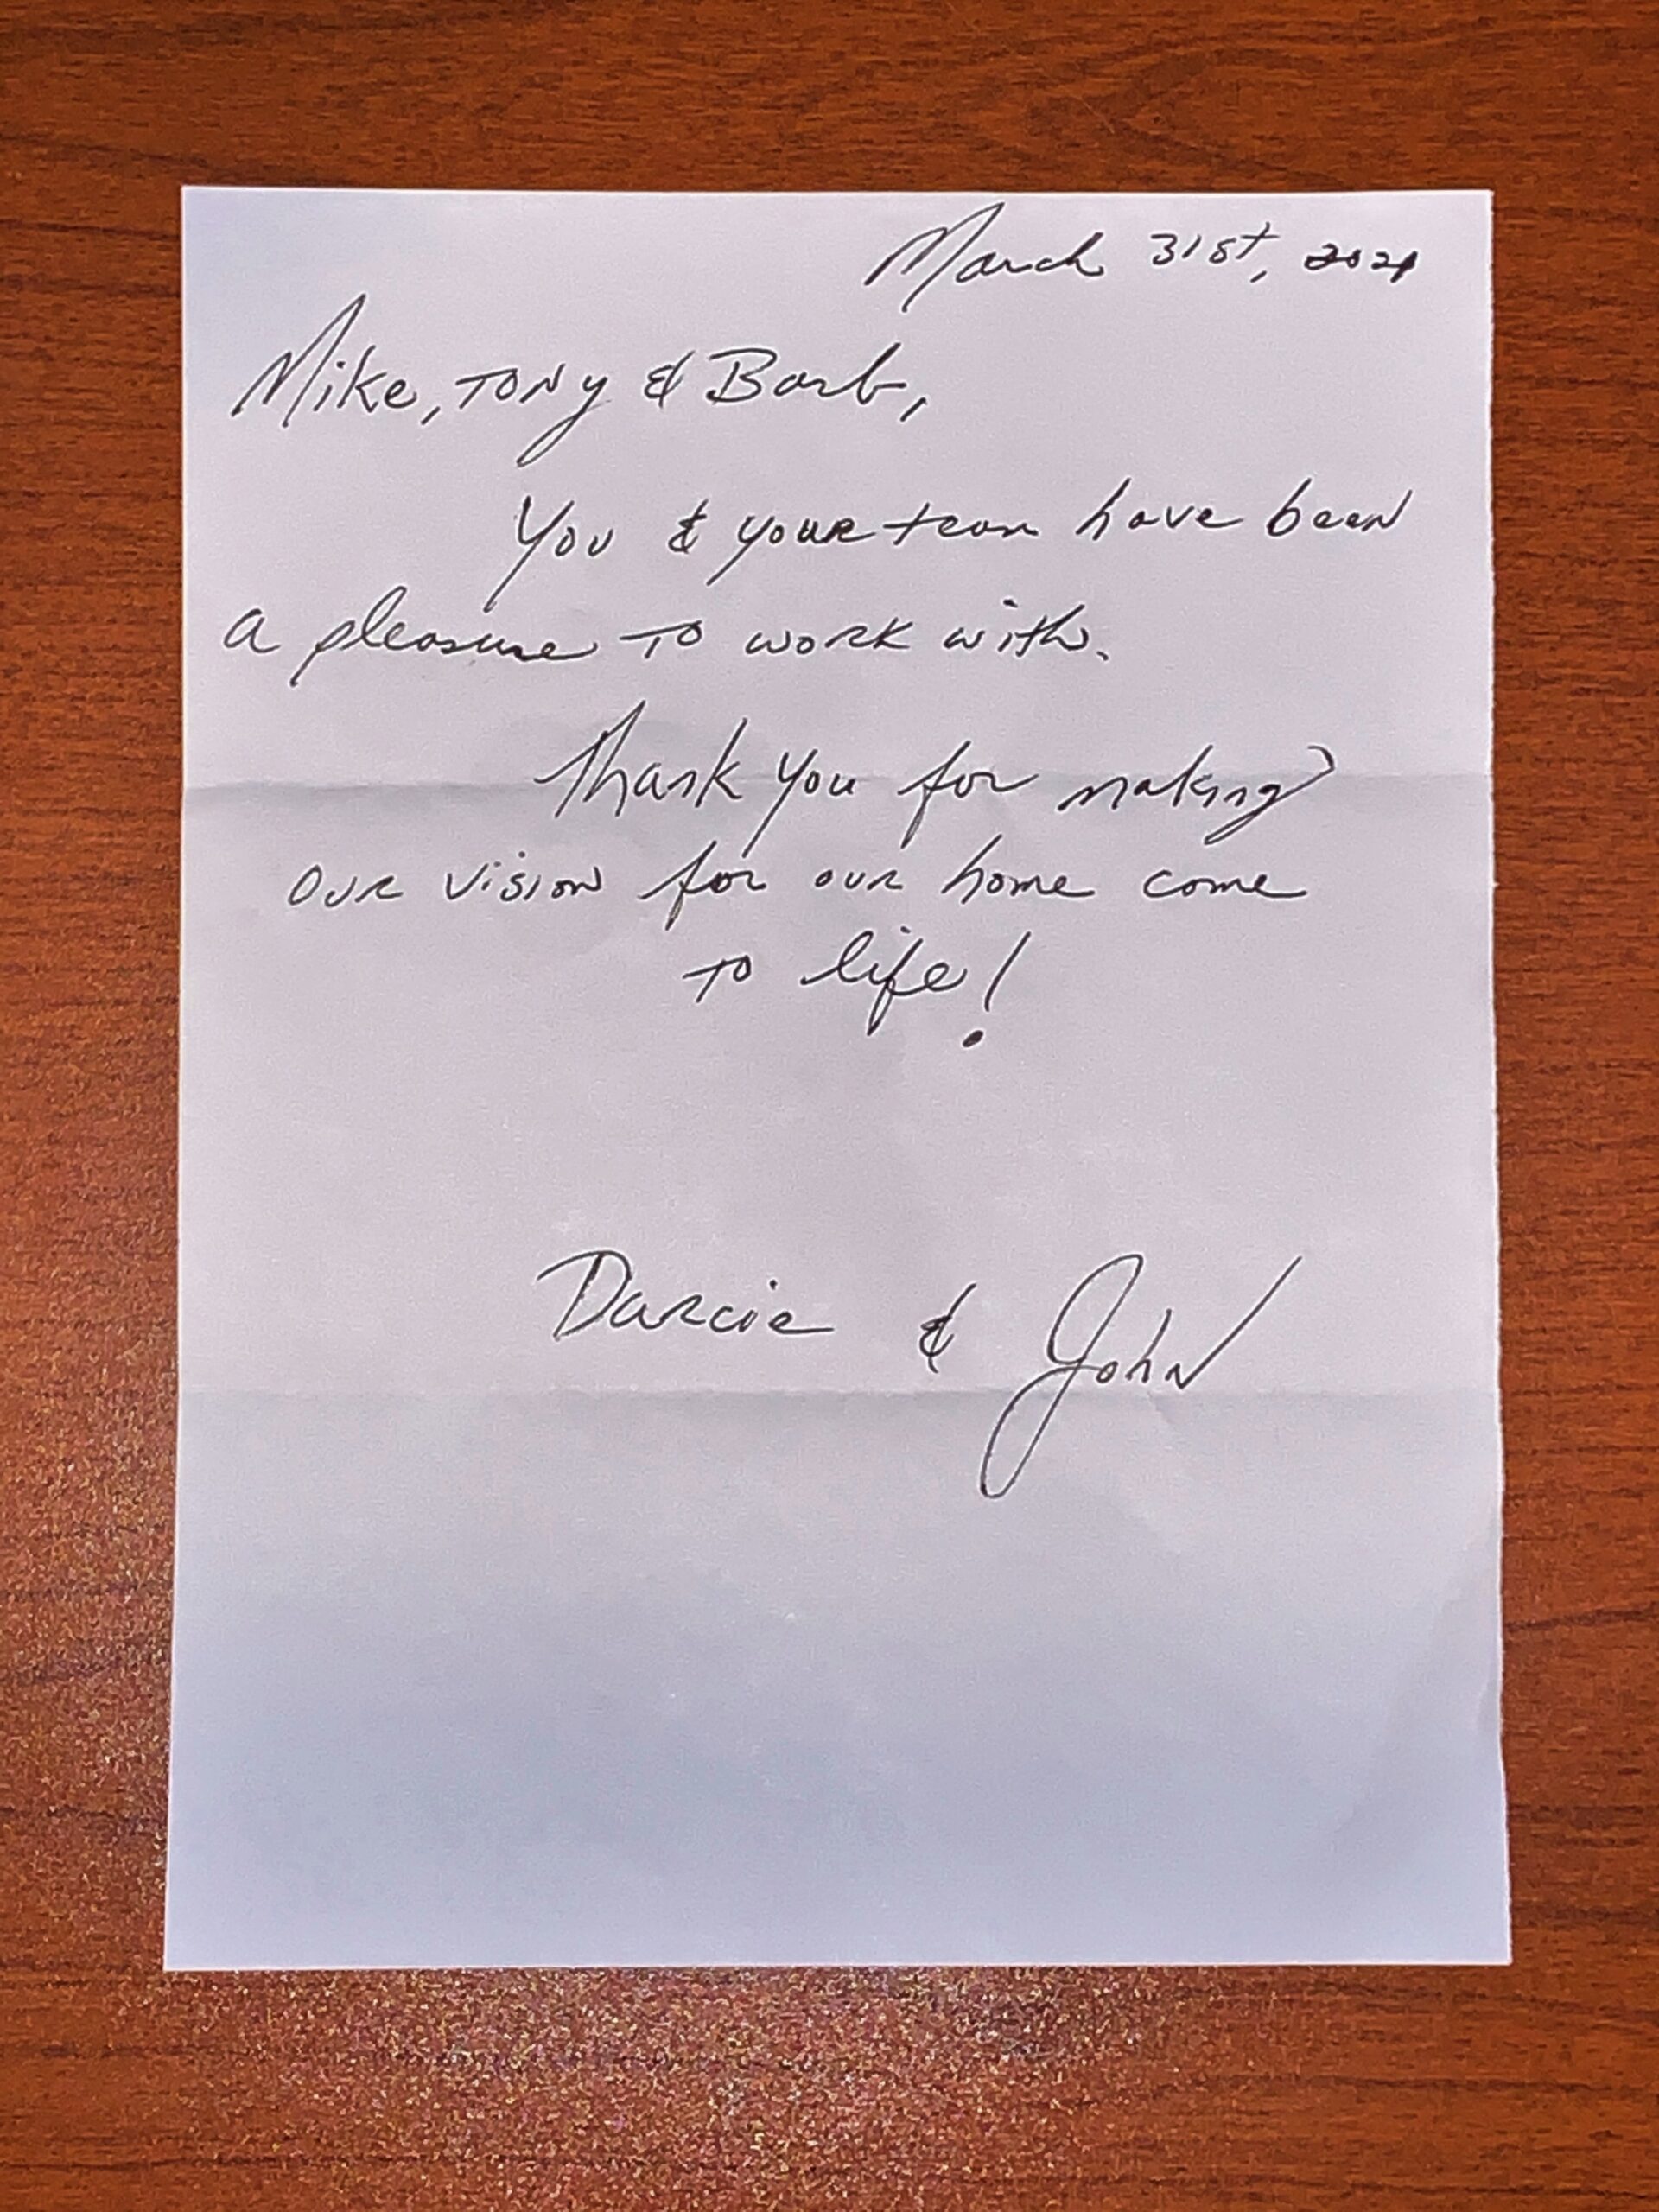 March 31st, 2021
Mike, Tony & Barb,
You & your team have been
a pleasure to work with.
Thank you for making
our vision for our home come
to life!
Darcie & John